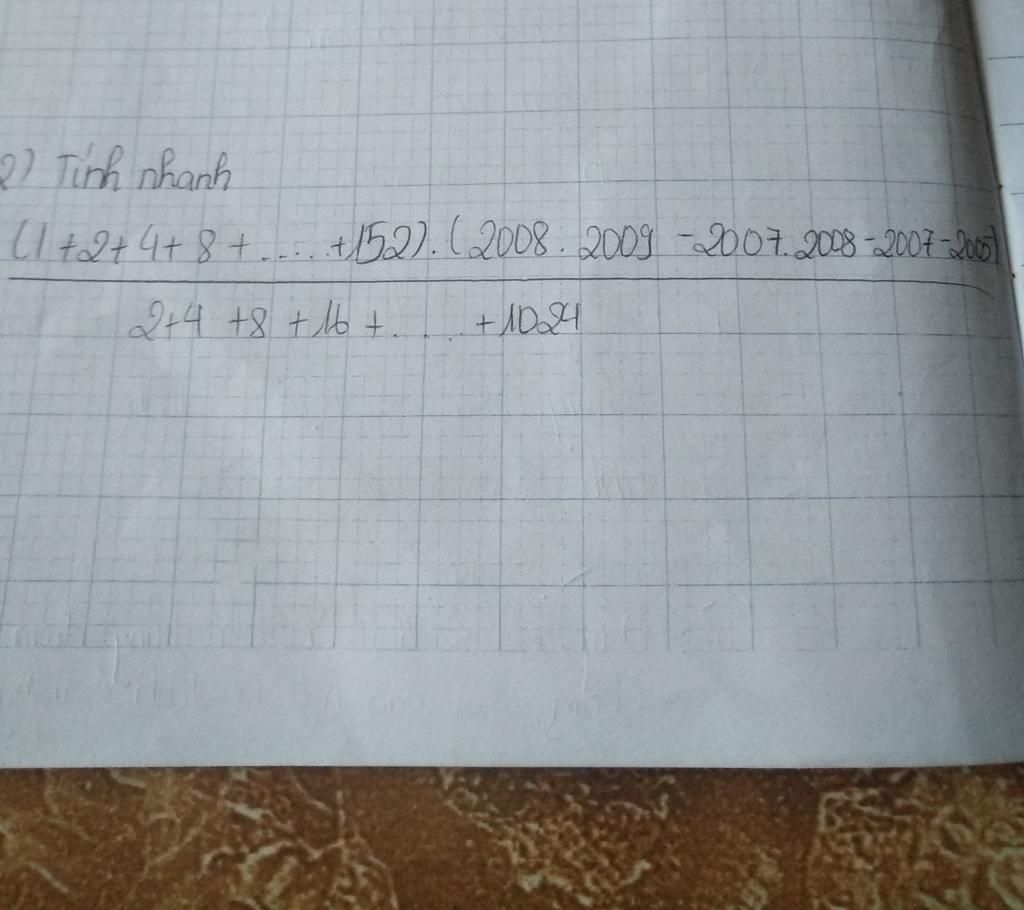 2) Tính nhanh
(1+2+4+8+.....+152).(2008.2009 -2007.2008-2007-2005)
2+4 +8 +16 +.... +1024